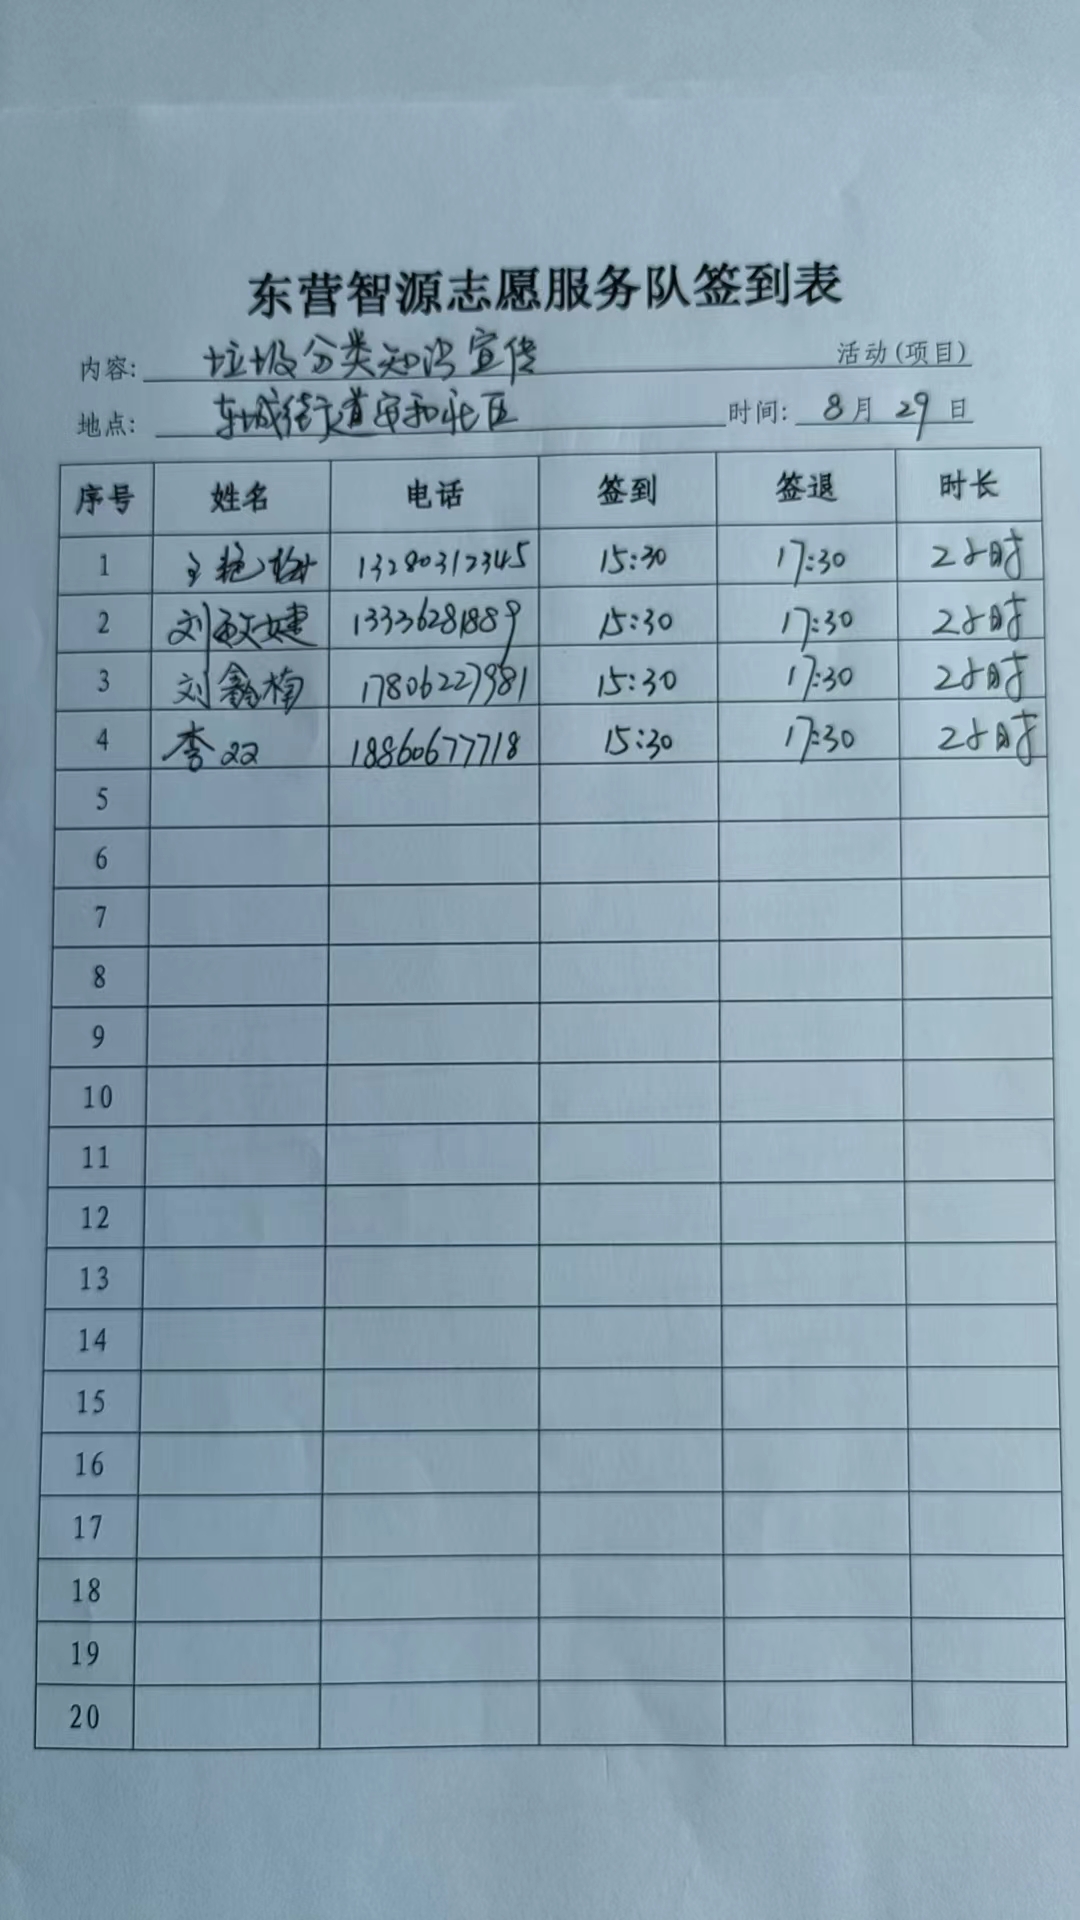 东营智源志愿服务队签到表
内容: 垃圾分类知识宣传 活动(项目)
地点: 东城街道安和社区 时间: 8月29日
序号 姓名 电话 签到 签退 时长
1 王艳梅 13280312345 15:30 17:30 2小时
2 刘敏婕 13336281889 15:30 17:30 2小时
3 刘鑫楠 17806227981 15:30 17:30 2小时
4 李双 18860677718 15:30 17:30 2小时
5
6
7
8
9
10
11
12
13
14
15
16
17
18
19
20